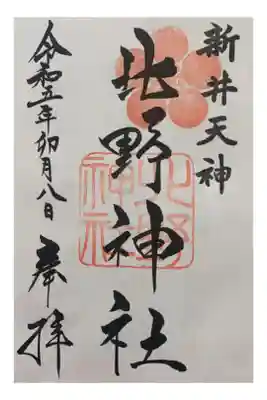 新井天神
北野神社
令和五年卯月八日
奉拝
北野
神社